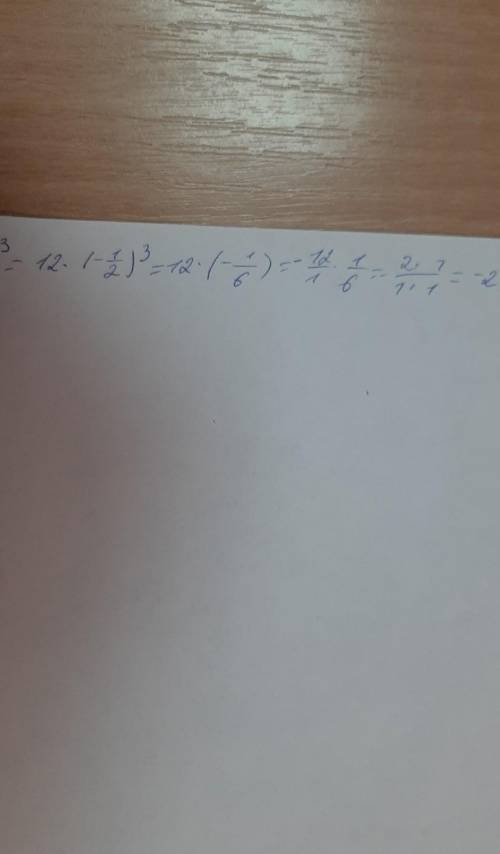 ³ = 12 · (-1/2)³ = 12 · (-1/6) = -12/1 · 1/6 = -2·1/1·1 = -2